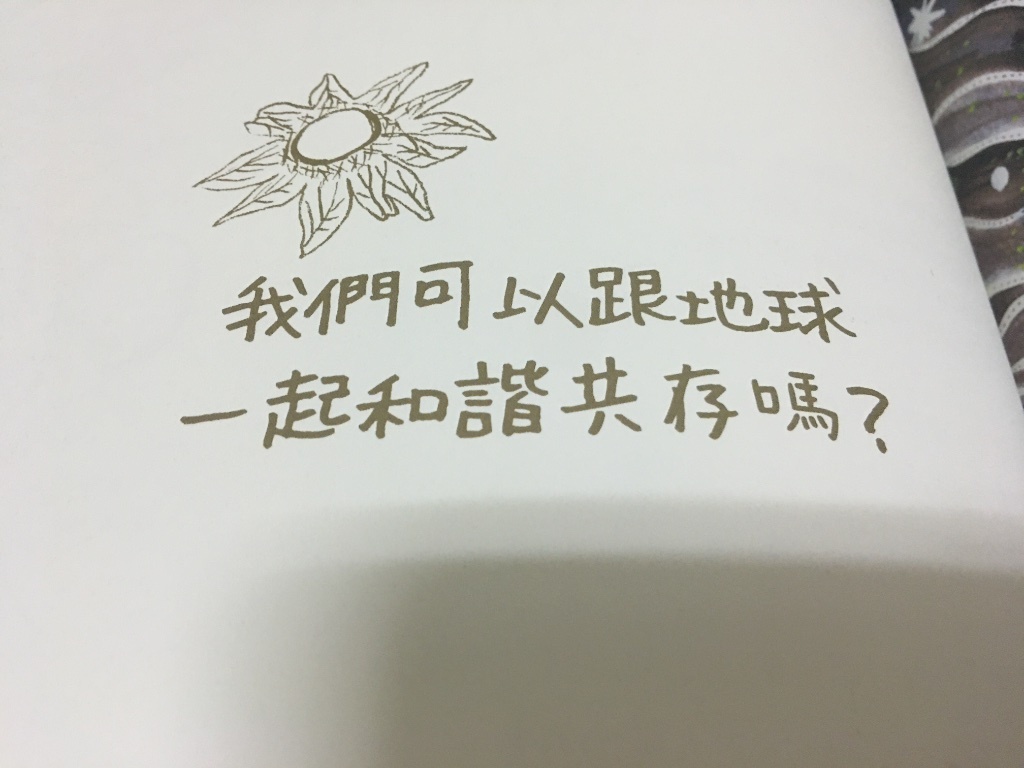 我們可以跟地球
一起和諧共存嗎?